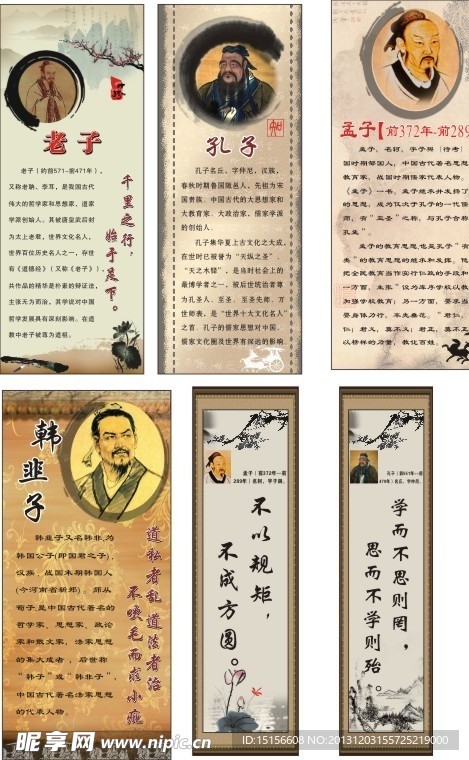 老子
老子（约前571—前471年），
又称老聃、李耳，是我国古代
伟大的哲学家和思想家，道家
学派创始人。其被唐皇武后封
为太上老君，世界文化名人，
世界百位历史名人之一，存世
有《道德经》（又称《老子》），
共作品的精华是朴素的辩证法，
主张无为而治，其学说对中国
哲学发展具有深刻影响。在道
教中老子被尊为道祖。
千里之行，
始于足下。
孔子
孔子名丘，字仲尼，汉族，
春秋时期鲁国陬邑人，先祖为宋
国贵族。中国古代的大思想家和
大教育家、大政治家，儒家学派
的创始人.
孔子集华夏上古文化之大成，
在世时已被誉为“天纵之圣”、
“天之木铎”，是当时社会上的
最博学者之一，被后世统治者尊
为孔圣人、至圣、至圣先师、万
世师表，是“世界十大文化名人”
之首。孔子的儒家思想对中国、
儒家文化圈及世界有深远的影响
孟子【前372年-前289
孟子，名轲，字子舆（待考）
国时期邹国人，中国古代著名思想
教育家，战国时期儒家代表人物。
《孟子》一书。孟子继承并发扬了
的思想，成为仅次于孔子的一代儒
师，有“亚圣”之称，与孔子合称
孔孟”。
韩非子
韩非子又名韩非,为
韩国公子(即国君之子),
汉族，战国末期韩国人
(今河南省新郑)。师从
荀子,是中国古代著名的
哲学家、思想家、政论
家和散文家，法家思想
的集大成者，后世称
“韩子”或“韩非子”，
中国古代著名法家思想
的代表人物。
道私者乱道法者治
不吹毛而求小疵
孟子（前372年—前
289年）名轲，字子舆。
不以规矩，
不成方圆。
孔子（前551年—前
479年）名丘，字仲尼。
学而不思则罔，
思而不学则殆。
昵享网 www.nipic.cn
ID:15156608 NO:20131203155725219000